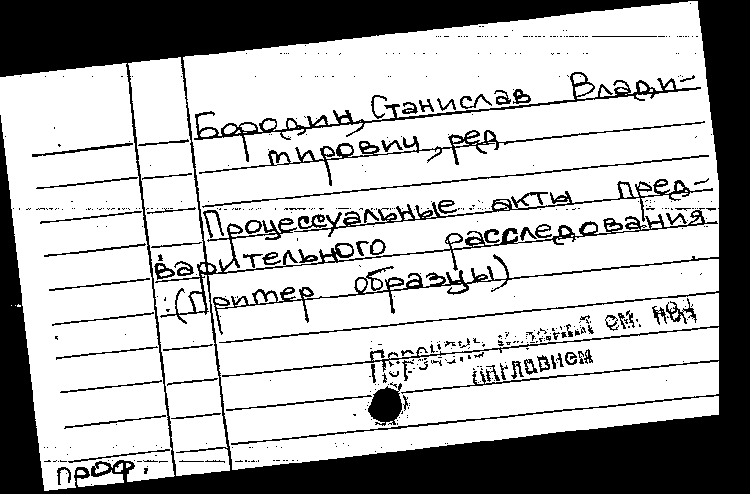 Бородин, Станислав Влади-
мирович, ред.
Процессуальные акты пред-
варительного расследования
(Пример образцы)
Перечень изданий см. под
заглавием
проф.